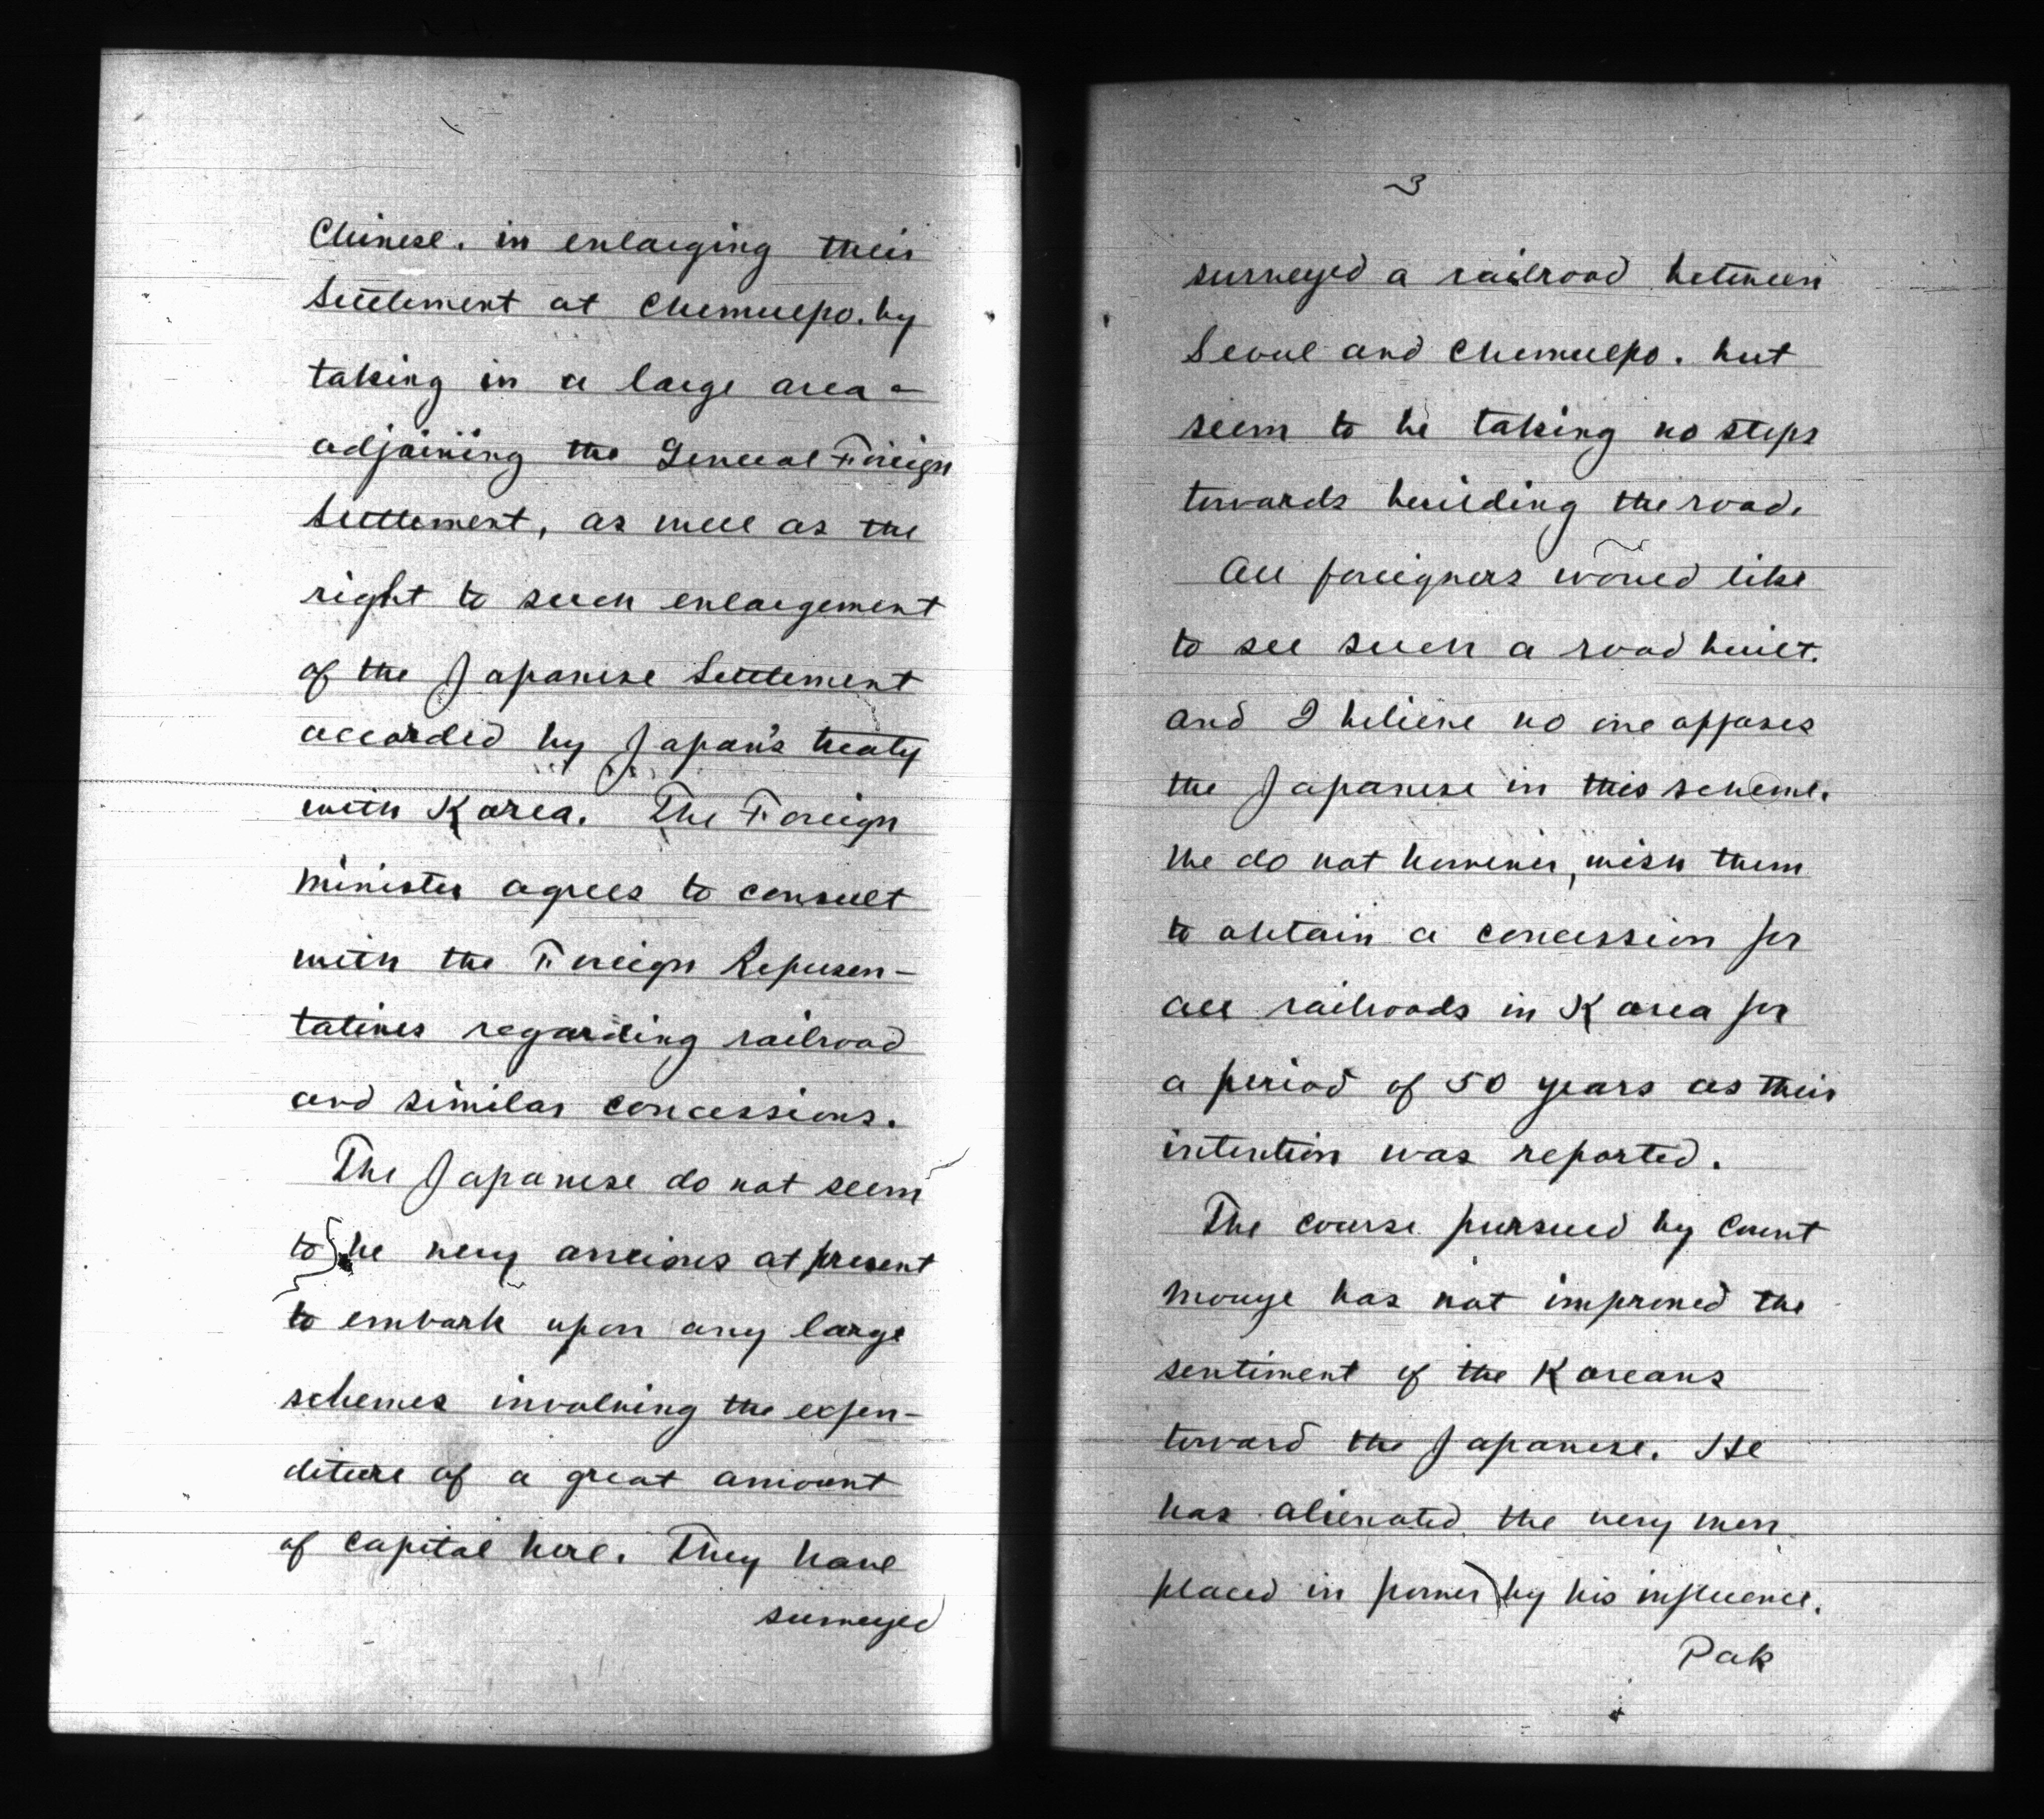 Chinese. in enlarging their
Settlement at Chemulpo. by
taking in a large area -
adjoining the General Foreign
Settlement, as well as the
right to such enlargement
of the Japanese Settlement
accorded by Japan's treaty
with Korea. The Foreign
Minister agrees to consult
with the Foreign Represen-
tatives regarding railroad
and similar concessions.
The Japanese do not seem
to be very anxious at present
to embark upon any large
schemes involving the expen-
diture of a great amount
of capital here. They have
surveyed
3
surveyed a railroad between
Seoul and Chemulpo. but
seem to be taking no steps
towards building the road.
All foreigners would like
to see such a road built.
and I believe no one opposes
the Japanese in this scheme.
We do not however, wish them
to obtain a concession for
all railroads in Korea for
a period of 50 years as their
intention was reported.
The course pursued by Count
Inouye has not improved the
sentiment of the Koreans
toward the Japanese. He
has alienated the very men
placed in power by his influence.
Pak